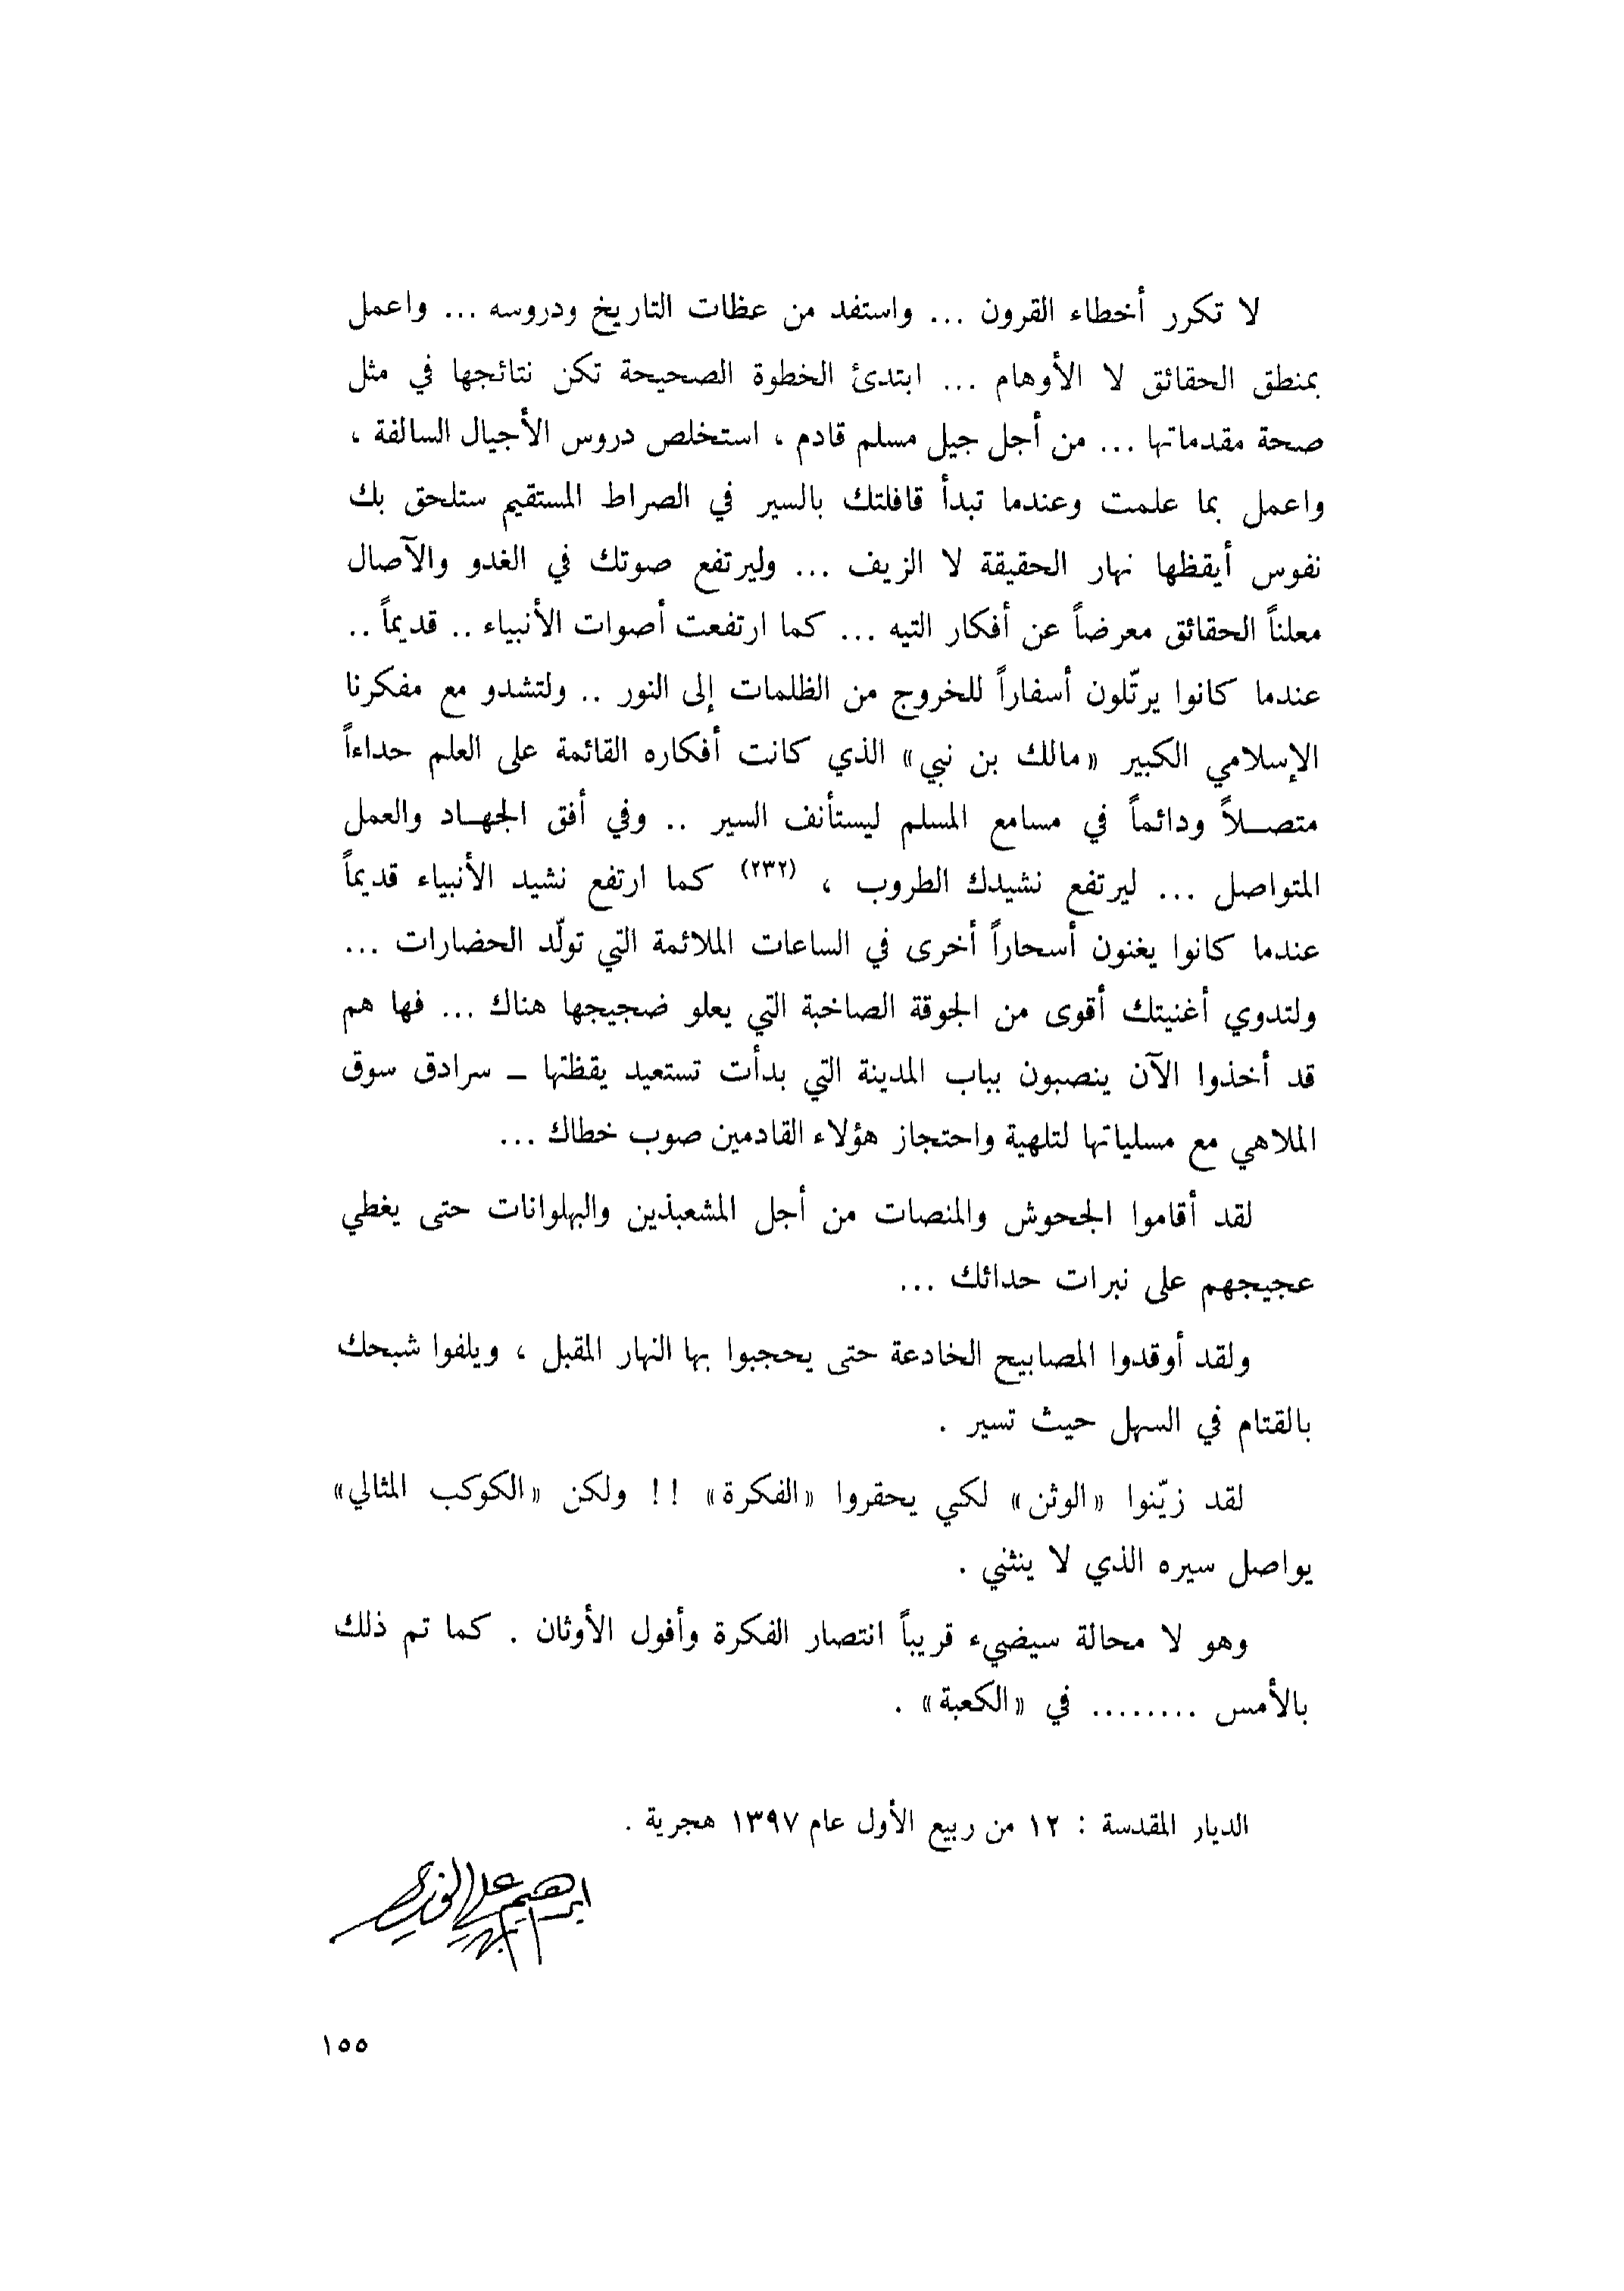 لا تكرر أخطاء القرون ... واستفد من عظات التاريخ ودروسه ... واعمل
بمنطق الحقائق لا الأوهام ... ابتدئ الخطوة الصحيحة تكن نتائجها في مثل
صحة مقدماتها ... من أجل جيل مسلم قادم ، استخلص دروس الأجيال السالفة ،
واعمل بما علمت وعندما تبدأ قافلتك بالسير في الصراط المستقيم ستلحق بك
نفوس أيقظها نهار الحقيقة لا الزيف ... وليرتفع صوتك في الغدو والآصال
معلناً الحقائق معرضاً عن أفكار التيه ... كما ارتفعت أصوات الأنبياء .. قديماً ..
عندما كانوا يرتّلون أسفاراً للخروج من الظلمات إلى النور .. ولتشدو مع مفكرنا
الإسلامي الكبير «مالك بن نبي» الذي كانت أفكاره القائمة على العلم حداءاً
متصلاً ودائماً في مسامع المسلم ليستأنف السير .. وفي أفق الجهاد والعمل
المتواصل ... ليرتفع نشيدك الطروب ، (٢٣٢) كما ارتفع نشيد الأنبياء قديماً
عندما كانوا يغنون أسحاراً أخرى في الساعات الملائمة التي تولّد الحضارات ...
ولتدوي أغنيتك أقوى من الجوقة الصاخبة التي يعلو ضجيجها هناك ... فها هم
قد أخذوا الآن ينصبون بباب المدينة التي بدأت تستعيد يقظتها ــ سرادق سوق
الملاهي مع مسلياتها لتلهية واحتجاز هؤلاء القادمين صوب خطاك ...
لقد أقاموا الجحوش والمنصات من أجل المشعبذين والبهلوانات حتى يغطي
عجيجهم على نبرات حدائك ...
ولقد أوقدوا المصابيح الخادعة حتى يحجبوا بها النهار المقبل ، ويلفوا شبحك
بالقتام في السهل حيث تسير .
لقد زيّنوا «الوثن» لكي يحقروا «الفكرة» !! ولكن «الكوكب المثالي»
يواصل سيره الذي لا ينثني .
وهو لا محالة سيضيء قريباً انتصار الفكرة وأفول الأوثان . كما تم ذلك
بالأمس ........ في «الكعبة» .
الديار المقدسة : ١٢ من ربيع الأول عام ١٣٩٧ هجرية .
ابراهيم علي
١٥٥